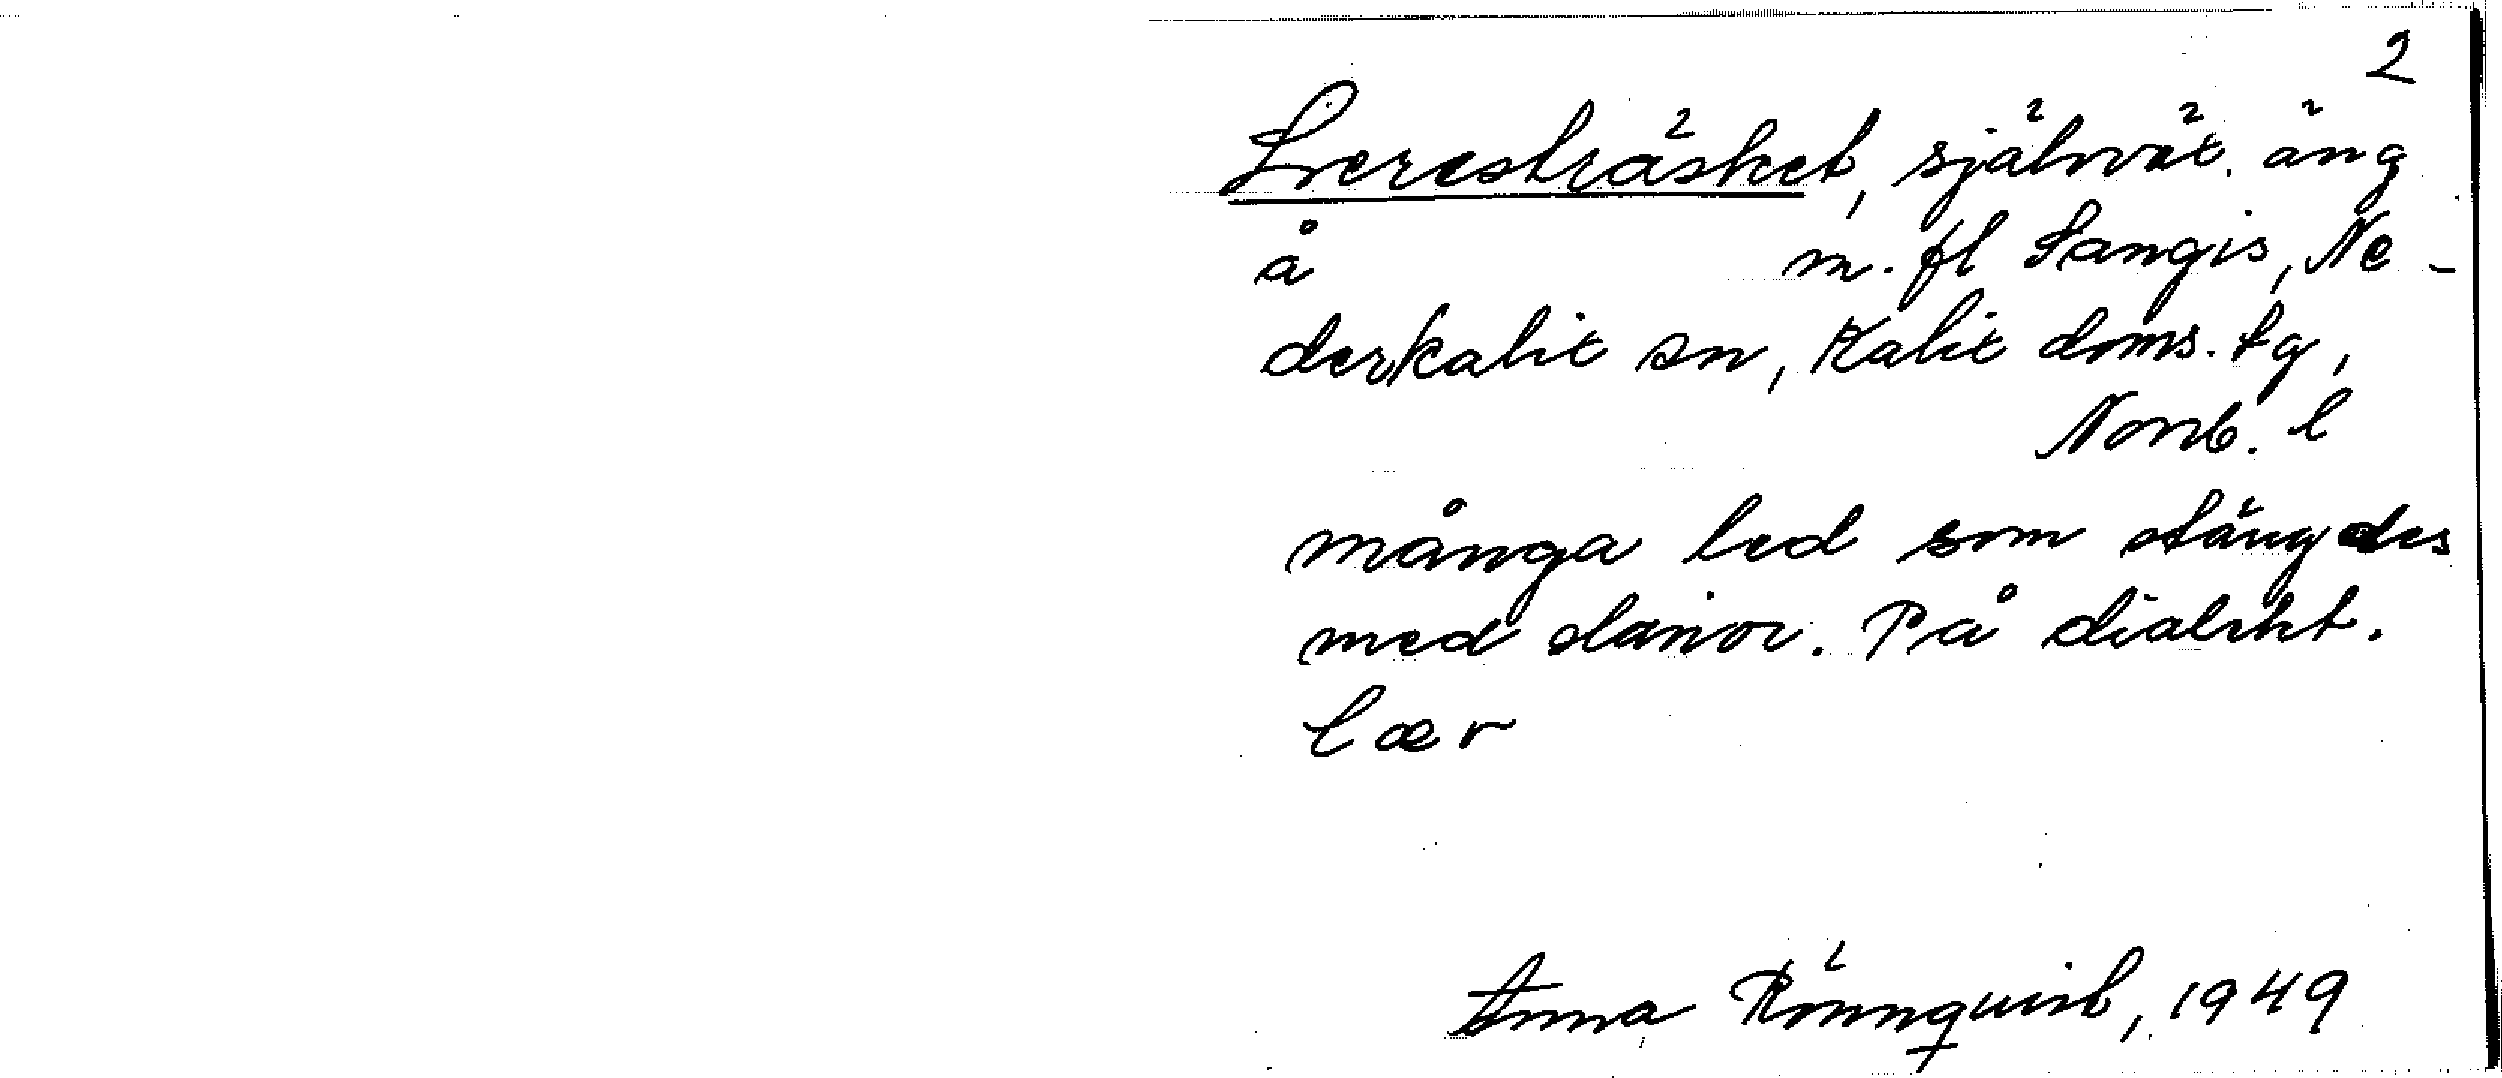 2
Leresträsket, självät. äng
å m. fl Sangis, Ne-
derkalix sn, Kalix doms. tg,
Norrb. l
många led som stängdes
med slanor. På dialekt.
lær
Anna Rönnquist, 1949